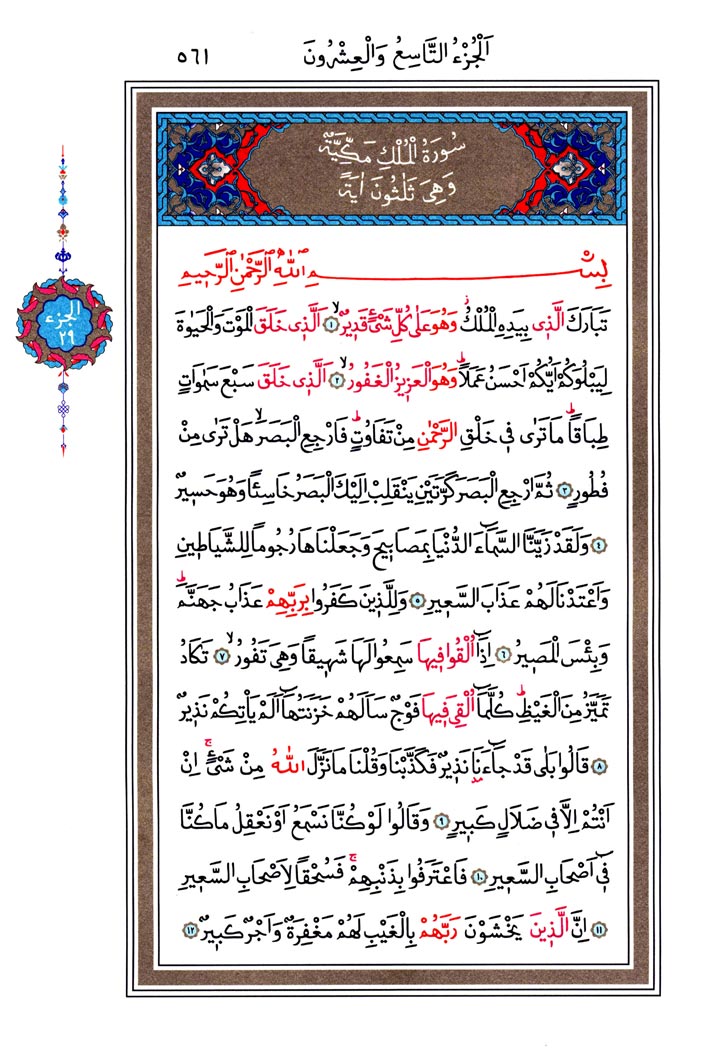 اَلْجُزْءُ التَّاسِعُ وَالْعِشْرُونَ ٥٦١
سُورَةُ الْمُلْكِ مَكِّيَّةٌ
وَهِىَ ثَلٰثُونَ اٰيَةً
الجزء
٢٩
بِسْمِ اللّٰهِ الرَّحْمٰنِ الرَّحِيمِ
تَبَارَكَ الَّذ۪ى بِيَدِهِ الْمُلْكُۘ وَهُوَ عَلٰى كُلِّ شَىْءٍ قَد۪يرٌۙ ١ اَلَّذ۪ى خَلَقَ الْمَوْتَ وَالْحَيٰوةَ
لِيَبْلُوَكُمْ اَيُّكُمْ اَحْسَنُ عَمَلاًۜ وَهُوَ الْعَز۪يزُ الْغَفُورُۙ ٢ اَلَّذ۪ى خَلَقَ سَبْعَ سَمٰوَاتٍ
طِبَاقاًۜ مَا تَرٰى ف۪ى خَلْقِ الرَّحْمٰنِ مِنْ تَفَاوُتٍۜ فَارْجِعِ الْبَصَرَۙ هَلْ تَرٰى مِنْ
فُطُورٍ ٣ ثُمَّ ارْجِعِ الْبَصَرَ كَرَّتَيْنِ يَنْقَلِبْ اِلَيْكَ الْبَصَرُ خَاسِئاً وَهُوَ حَس۪يرٌ
٤ وَلَقَدْ زَيَّنَّا السَّمَٓاءَ الدُّنْيَا بِمَصَاب۪يحَ وَجَعَلْنَاهَا رُجُوماً لِلشَّيَاط۪ينِ
وَاَعْتَدْنَا لَهُمْ عَذَابَ السَّع۪يرِ ٥ وَلِلَّذ۪ينَ كَفَرُوا بِرَبِّهِمْ عَذَابُ جَهَنَّمَۜ
وَبِئْسَ الْمَص۪يرُ ٦ اِذَٓا اُلْقُوا ف۪يهَا سَمِعُوا لَهَا شَه۪يقاً وَهِىَ تَفُورُۙ ٧ تَكَادُ
تَمَيَّزُ مِنَ الْغَيْظِۜ كُلَّمَٓا اُلْقِىَ ف۪يهَا فَوْجٌ سَاَلَهُمْ خَزَنَتُهَٓا اَلَمْ يَأْتِكُمْ نَذ۪يرٌ
٨ قَالُوا بَلٰى قَدْ جَٓاءَنَا نَذ۪يرٌ فَكَذَّبْنَا وَقُلْنَا مَا نَزَّلَ اللّٰهُ مِنْ شَىْءٍۚ اِنْ
اَنْتُمْ اِلَّا ف۪ى ضَلَالٍ كَب۪يرٍ ٩ وَقَالُوا لَوْ كُنَّا نَسْمَعُ اَوْ نَعْقِلُ مَا كُنَّا
ف۪ٓى اَصْحَابِ السَّع۪يرِ ١٠ فَاعْتَرَفُوا بِذَنْبِهِمْۚ فَسُحْقاً لِاَصْحَابِ السَّع۪يرِ
١١ اِنَّ الَّذ۪ينَ يَخْشَوْنَ رَبَّهُمْ بِالْغَيْبِ لَهُمْ مَغْفِرَةٌ وَاَجْرٌ كَب۪يرٌ ١٢